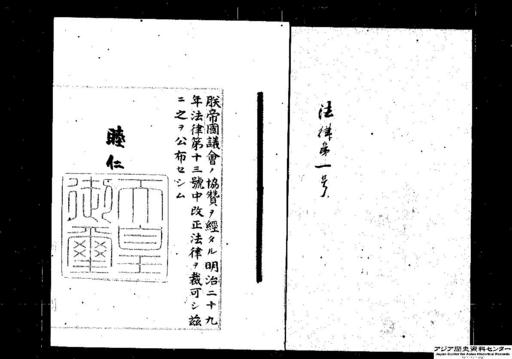 法律第一号
朕帝國議會ノ協賛ヲ經タル明治二十九
年法律第十三號中改正法律ヲ裁可シ茲
ニ之ヲ公布セシム
睦仁
天皇
御璽
アジア歴史資料センター
Japan Center for Asian Historical Records